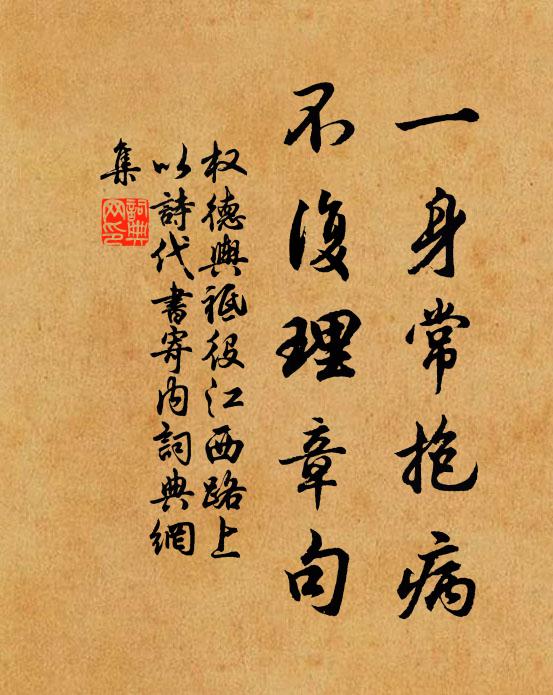 一身常抱病
不復理章句
权德輿祗役江西路上
以詩代書寄内詞典網
集
詞典
网印